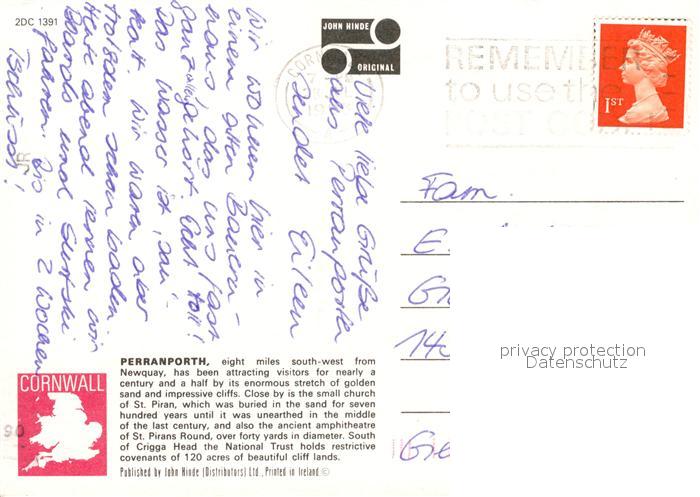 2DC 1391
JOHN HINDE
ORIGINAL
REMEMBER
to use the
POST CODE
1ST
Viele liebe Grüße
aus Perranporth
sendet Eileen
Wir wohnen hier in
einem alten Bauern-
haus, das uns fast
ganz allein gehört. Echt toll!
Das Wasser ist "sau"-
kalt. Wir waren aber
trotzdem schon baden.
Heute abend lernen wir
und Surfski
fahren. Bis in 2 Wochen
Tschüss!
Fam.
E.
140
privacy protection
Datenschutz
CORNWALL
PERRANPORTH, eight miles south-west from
Newquay, has been attracting visitors for nearly a
century and a half by its enormous stretch of golden
sand and impressive cliffs. Close by is the small church
of St. Piran, which was buried in the sand for seven
hundred years until it was unearthed in the middle
of the last century, and also the ancient amphitheatre
of St. Pirans Round, over forty yards in diameter. South
of Crigga Head the National Trust holds restrictive
covenants of 120 acres of beautiful cliff lands.
Published by John Hinde (Distributors) Ltd., Printed in Ireland.©